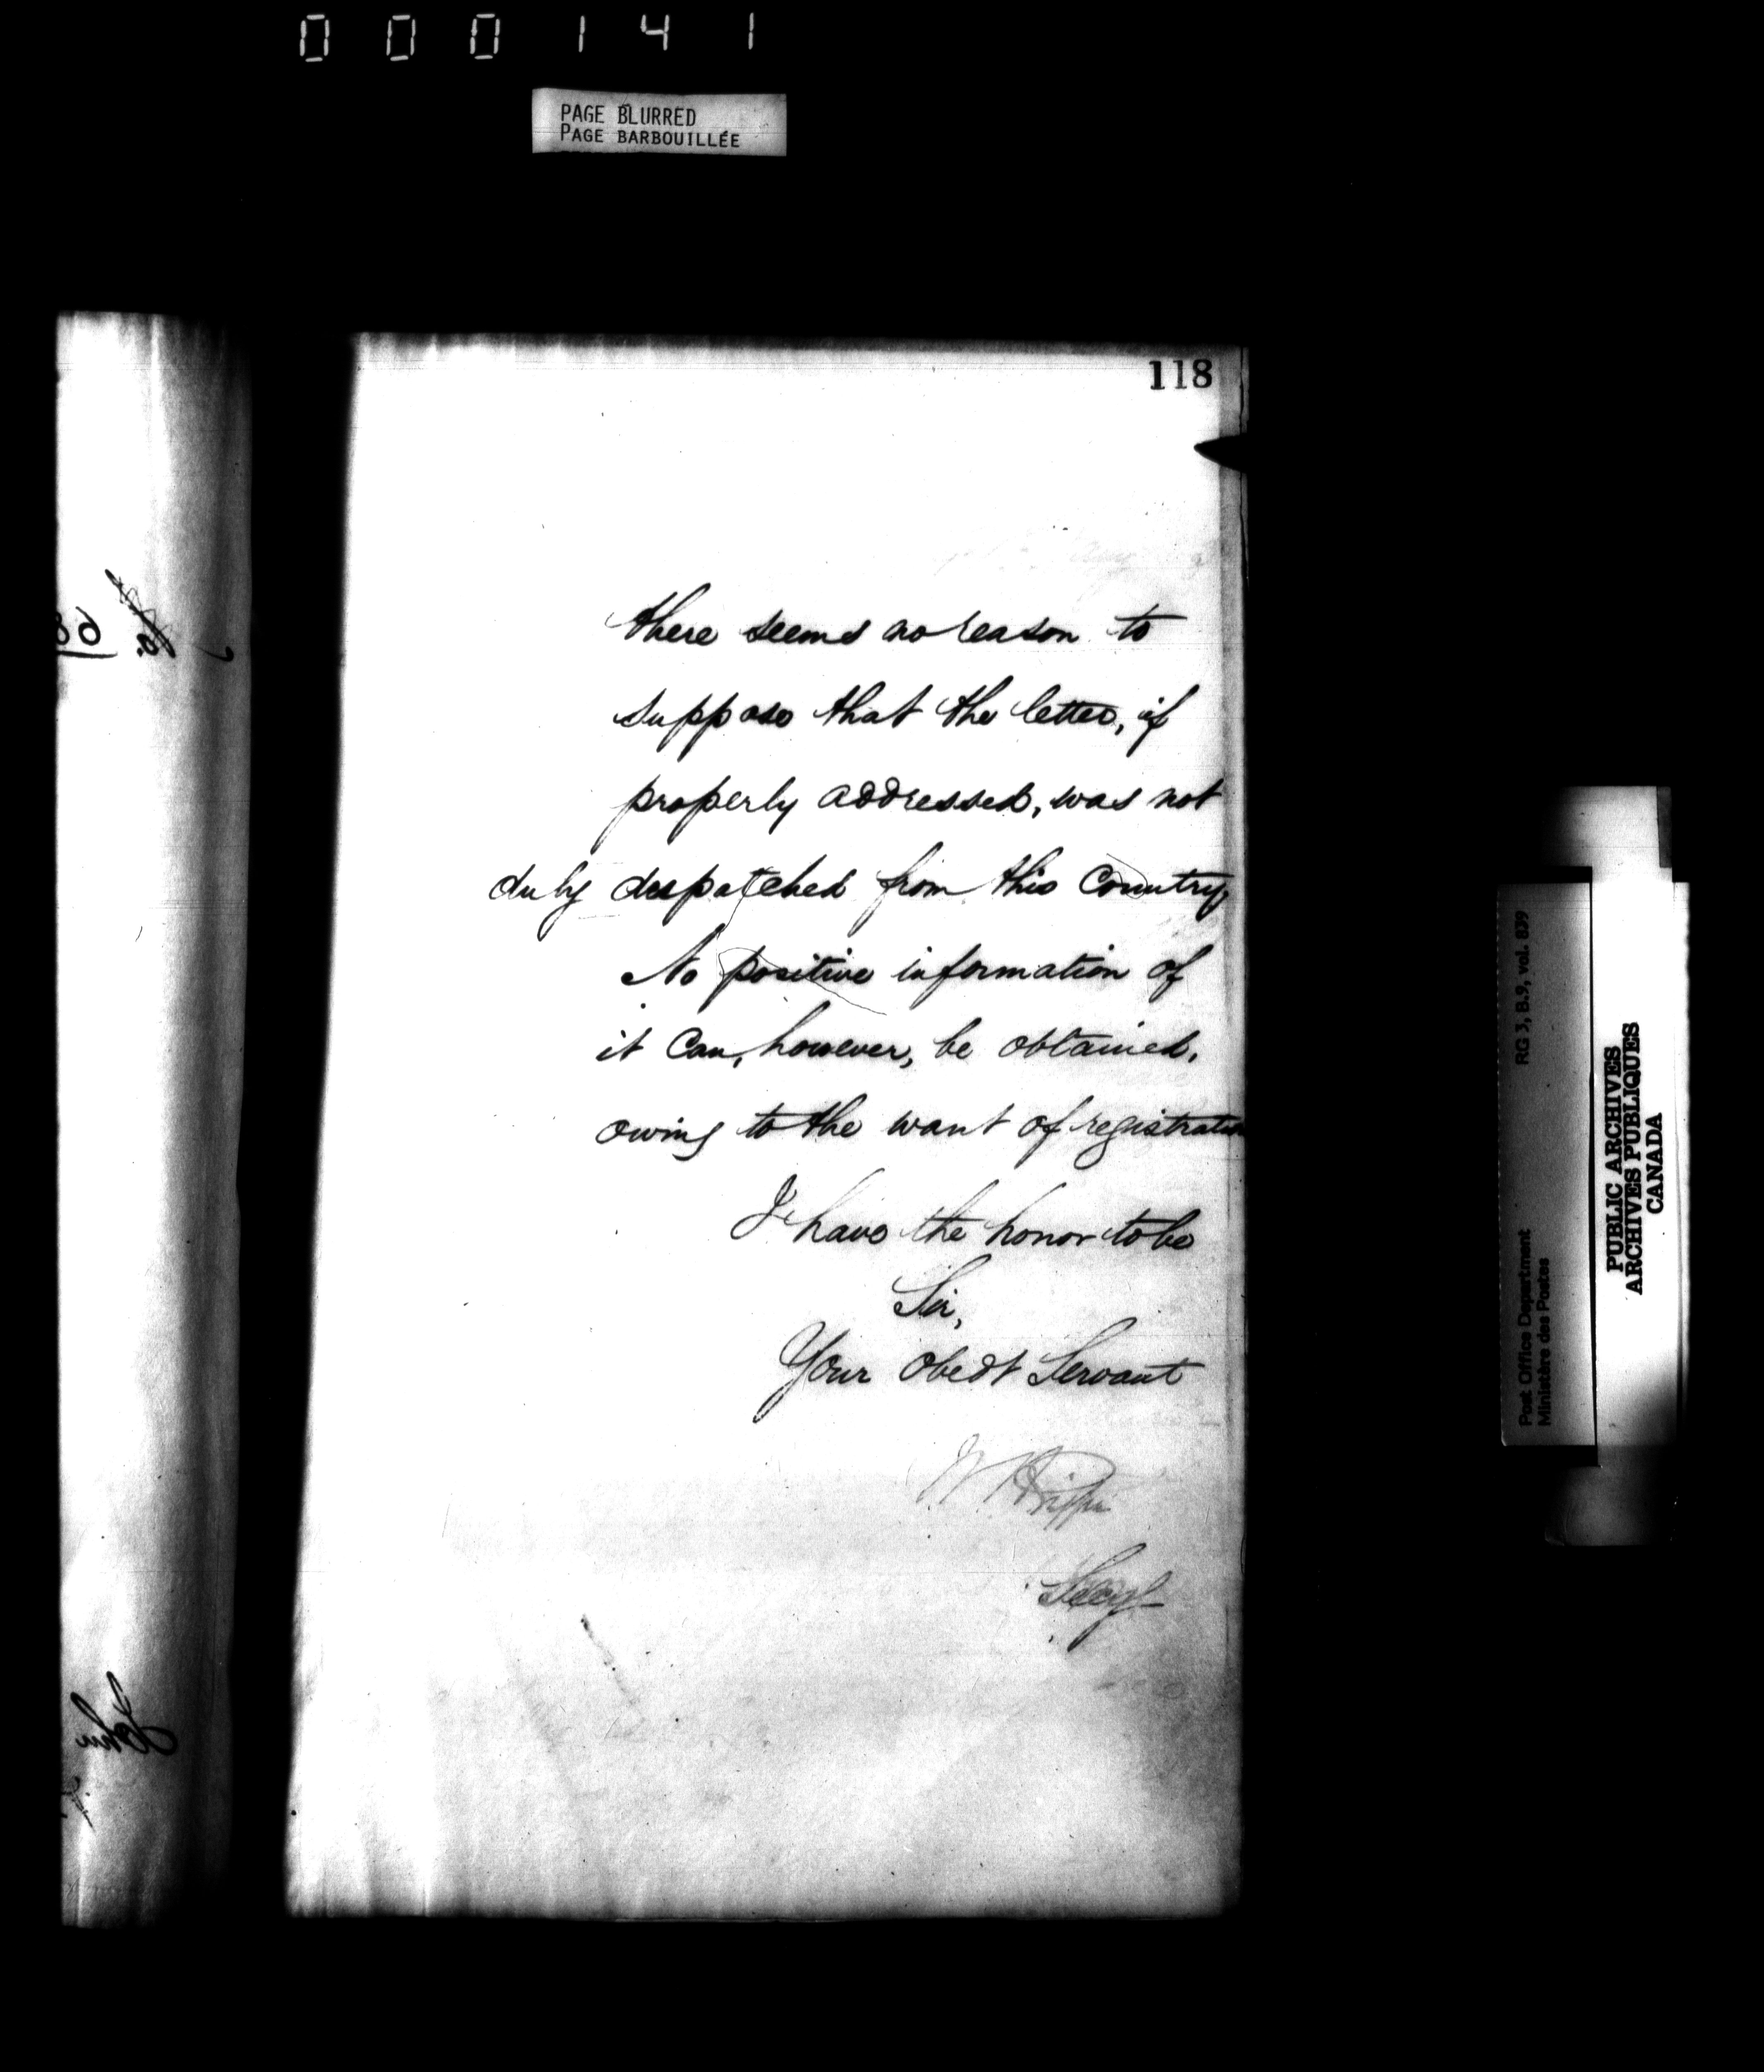 000141
PAGE BLURRED
PAGE BARBOUILLÉE
118
there seems no reason to
suppose that the letter, if
properly addressed, was not
duly despatched from this Country.
No positive information of
it Can, however, be obtained,
owing to the want of registration
I have the honor to be
Sir,
Your Obedt Servant
Secy
John
RG 3, B.9, vol. 839
Post Office Department
Ministère des Postes
PUBLIC ARCHIVES
ARCHIVES PUBLIQUES
CANADA